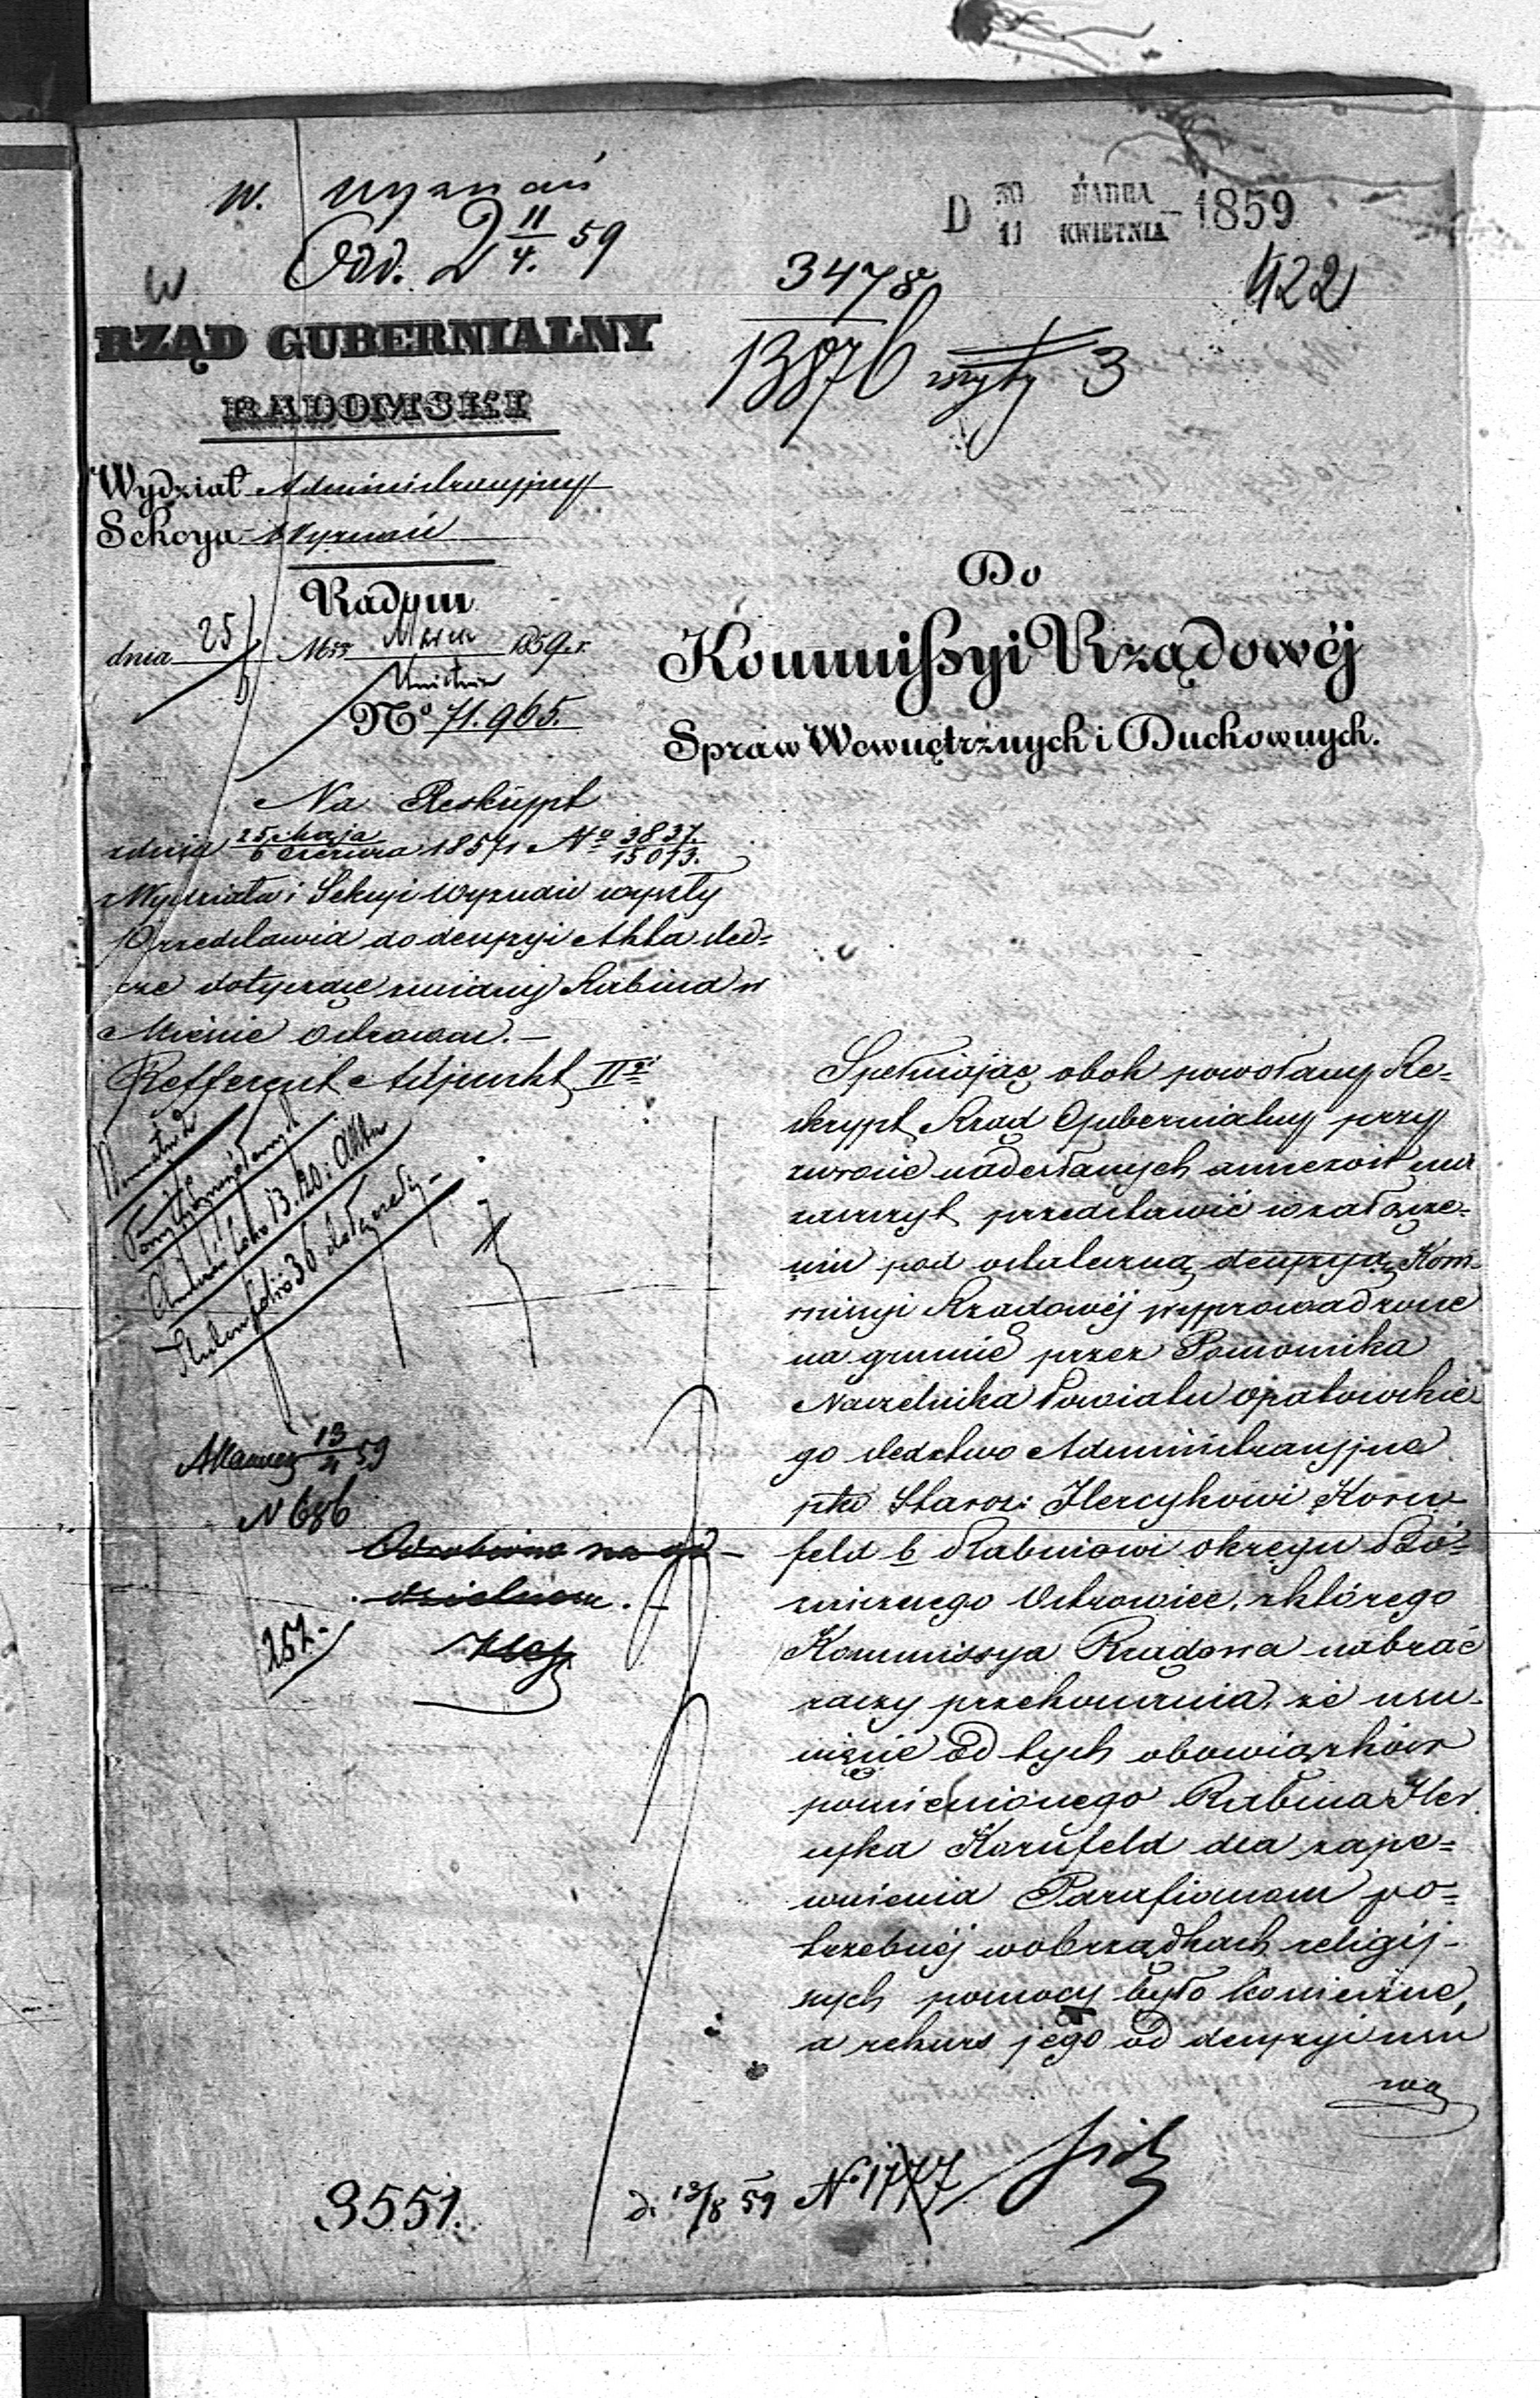 W. Wyznań
Odd. 2 11/4. 59
D 30 MARCA 11 KWIETNIA 1859
3478
13876 zszyty 3
422
W
RZĄD GUBERNIALNY
RADOMSKI
Wydział Administracyjny
Sekcya Wyznań
Radom
dnia 25 Mca Marca 1859 r.
Kwietnia
No 71.965.
Do
Kommissyi Rządowéj
Spraw Wewnętrznych i Duchownych.
Na Reskrypt
zdnia 25 Maja 6 Czerwca 1857 r No 3837. 15073.
z Wydziału i Sekcyi Wyznań wyszły
Przedstawia do decyzyi Akta śled=
cze dotyczące zmiany Rabina w
Mieście Ostrowcu. –
Refferent Adjunkt II
folio 36 dołączały
13/4 59
N 686
Odrobiono na od-
dzielnem. –
257 –
Spełniając obok powołany Re=
skrypt Rząd Gubernialny przy
zwrocie nadesłanych annexów ma
zaszczyt przedstawić w załącze=
niu pod ostateczną decyzyą Kom-
missyi Rządowéj wyprowadzone
na gruncie przez Pomocnika
Naczelnika Powiatu Opatowskie
go śledztwo Administracyjne
pko Staroz: Hercykowi Korn=
feld b Rabinowi okręgu Bó=
żniczego Ostrowiec, z którego
Kommissya Rządowa nabrać
raczy przekonania, że usu-
nięcie od tych obowiązków
pomienionego Rabina Her
cyka Kornfeld dla zape=
wnienia Parafianom po=
trzebnéj w obrządkach religij-
nych pomocy było konieczne,
a rekurs jego od decyzyi usu
wa
3551.
d. 13/8 59 No 1777